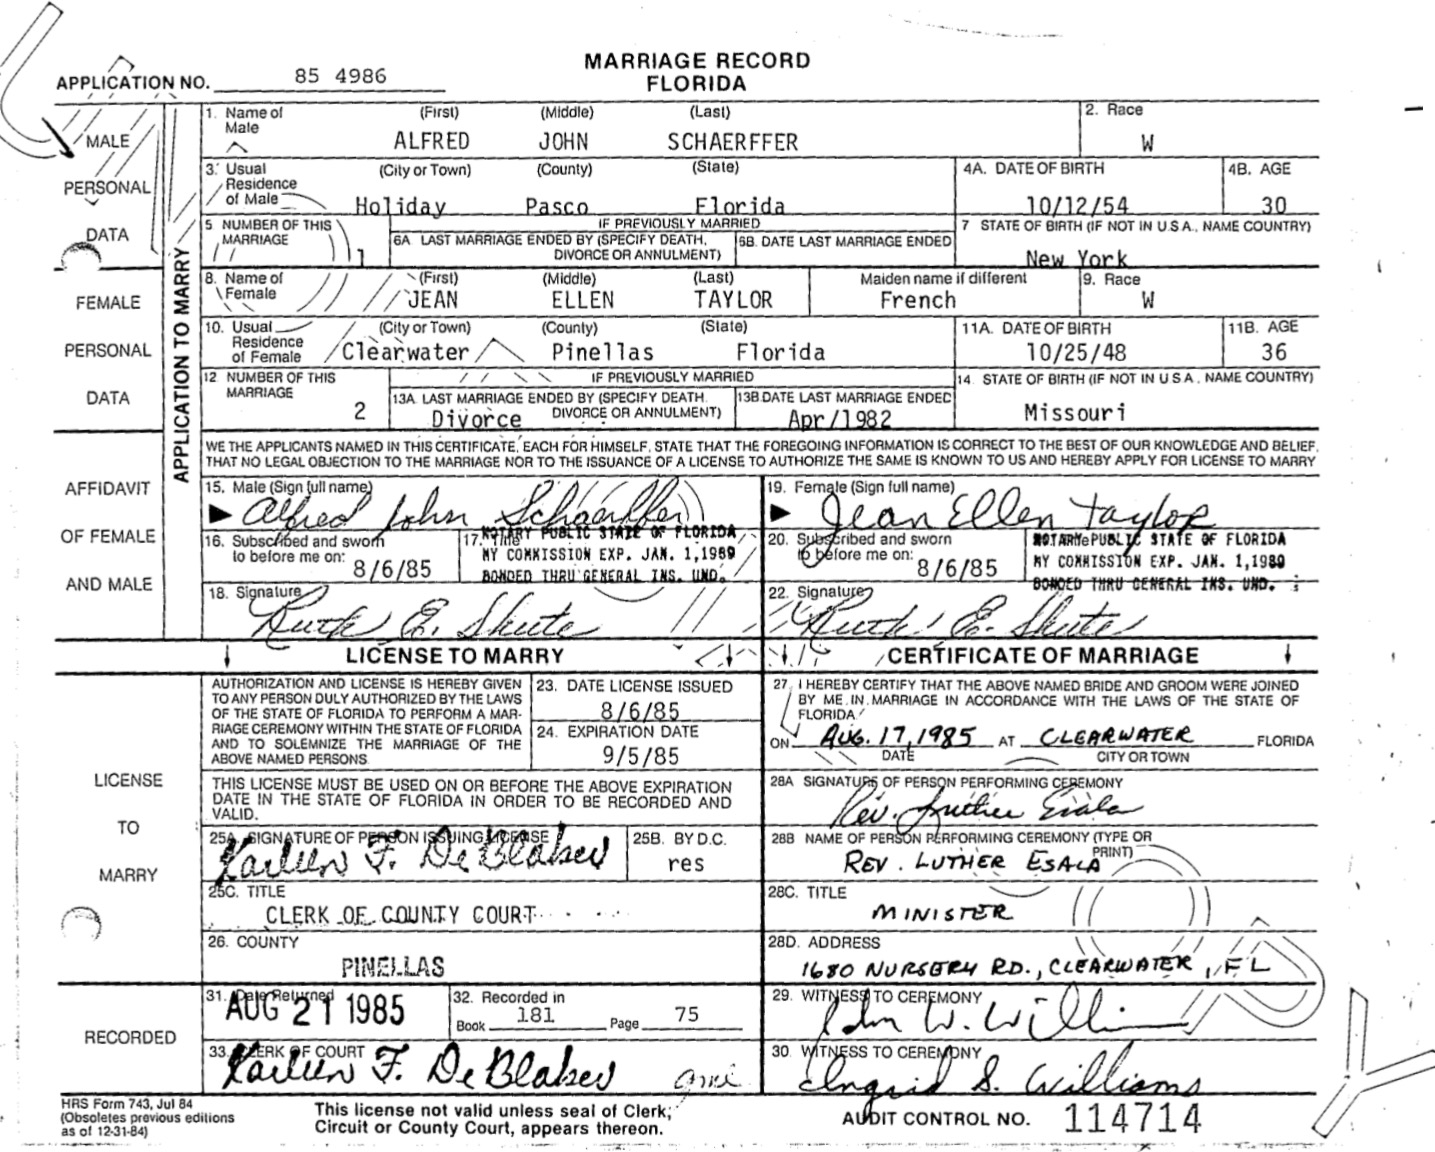 MARRIAGE RECORD
APPLICATION NO. 85 4986 FLORIDA
MALE
PERSONAL
DATA
FEMALE
PERSONAL
DATA
AFFIDAVIT
OF FEMALE
AND MALE
APPLICATION TO MARRY
1. Name of Male (First) (Middle) (Last) 2. Race
ALFRED JOHN SCHAERFFER W
3. Usual Residence of Male (City or Town) (County) (State) 4A. DATE OF BIRTH 4B. AGE
Holiday Pasco Florida 10/12/54 30
5 NUMBER OF THIS MARRIAGE IF PREVIOUSLY MARRIED 7 STATE OF BIRTH (IF NOT IN U.S.A., NAME COUNTRY)
1 6A LAST MARRIAGE ENDED BY (SPECIFY DEATH, DIVORCE OR ANNULMENT) 6B. DATE LAST MARRIAGE ENDED
New York
8. Name of Female (First) (Middle) (Last) Maiden name if different 9. Race
JEAN ELLEN TAYLOR French W
10. Usual Residence of Female (City or Town) (County) (State) 11A. DATE OF BIRTH 11B. AGE
Clearwater Pinellas Florida 10/25/48 36
12 NUMBER OF THIS MARRIAGE IF PREVIOUSLY MARRIED 14. STATE OF BIRTH (IF NOT IN U S A, NAME COUNTRY)
2 13A. LAST MARRIAGE ENDED BY (SPECIFY DEATH. DIVORCE OR ANNULMENT) 13B DATE LAST MARRIAGE ENDED
Divorce Apr/1982 Missouri
WE THE APPLICANTS NAMED IN THIS CERTIFICATE, EACH FOR HIMSELF, STATE THAT THE FOREGOING INFORMATION IS CORRECT TO THE BEST OF OUR KNOWLEDGE AND BELIEF,
THAT NO LEGAL OBJECTION TO THE MARRIAGE NOR TO THE ISSUANCE OF A LICENSE TO AUTHORIZE THE SAME IS KNOWN TO US AND HEREBY APPLY FOR LICENSE TO MARRY
15. Male (Sign full name)
Alfred John Schaerffer
19. Female (Sign full name)
Jean Ellen Taylor
16. Subscribed and sworn
to before me on:
8/6/85
17. Title
NOTARY PUBLIC STATE OF FLORIDA
MY COMMISSION EXP. JAN. 1,1989
BONDED THRU GENERAL INS. UND.
20. Subscribed and sworn
to before me on:
8/6/85
NOTARY PUBLIC STATE OF FLORIDA
MY COMMISSION EXP. JAN. 1,1989
BONDED THRU GENERAL INS. UND.
18. Signature
Ruth E. Shute
22. Signature
Ruth E. Shute
LICENSE TO MARRY
LICENSE
TO
MARRY
AUTHORIZATION AND LICENSE IS HEREBY GIVEN
TO ANY PERSON DULY AUTHORIZED BY THE LAWS
OF THE STATE OF FLORIDA TO PERFORM A MAR-
RIAGE CEREMONY WITHIN THE STATE OF FLORIDA
AND TO SOLEMNIZE THE MARRIAGE OF THE
ABOVE NAMED PERSONS.
23. DATE LICENSE ISSUED
8/6/85
24. EXPIRATION DATE
9/5/85
THIS LICENSE MUST BE USED ON OR BEFORE THE ABOVE EXPIRATION
DATE IN THE STATE OF FLORIDA IN ORDER TO BE RECORDED AND
VALID.
25A. SIGNATURE OF PERSON ISSUING LICENSE
Karleen F. De Blaker
25B. BY D.C.
res
25C. TITLE
CLERK OF COUNTY COURT
26. COUNTY
PINELLAS
CERTIFICATE OF MARRIAGE
27. I HEREBY CERTIFY THAT THE ABOVE NAMED BRIDE AND GROOM WERE JOINED
BY ME IN MARRIAGE IN ACCORDANCE WITH THE LAWS OF THE STATE OF
FLORIDA
ON AUG. 17, 1985 AT CLEARWATER FLORIDA
DATE CITY OR TOWN
28A SIGNATURE OF PERSON PERFORMING CEREMONY
Rev. Luther Esala
28B NAME OF PERSON PERFORMING CEREMONY (TYPE OR PRINT)
REV. LUTHER ESALA
28C. TITLE
MINISTER
28D. ADDRESS
1680 NURSERY RD., CLEARWATER, FL
RECORDED
31. Date Returned
AUG 21 1985
32. Recorded in
Book 181 Page 75
33. CLERK OF COURT
Karleen F. De Blaker
29. WITNESS TO CEREMONY
John W. Williams
30. WITNESS TO CEREMONY
Ingrid S. Williams
HRS Form 743, Jul 84
(Obsoletes previous editions
as of 12-31-84)
This license not valid unless seal of Clerk,
Circuit or County Court, appears thereon.
AUDIT CONTROL NO. 114714